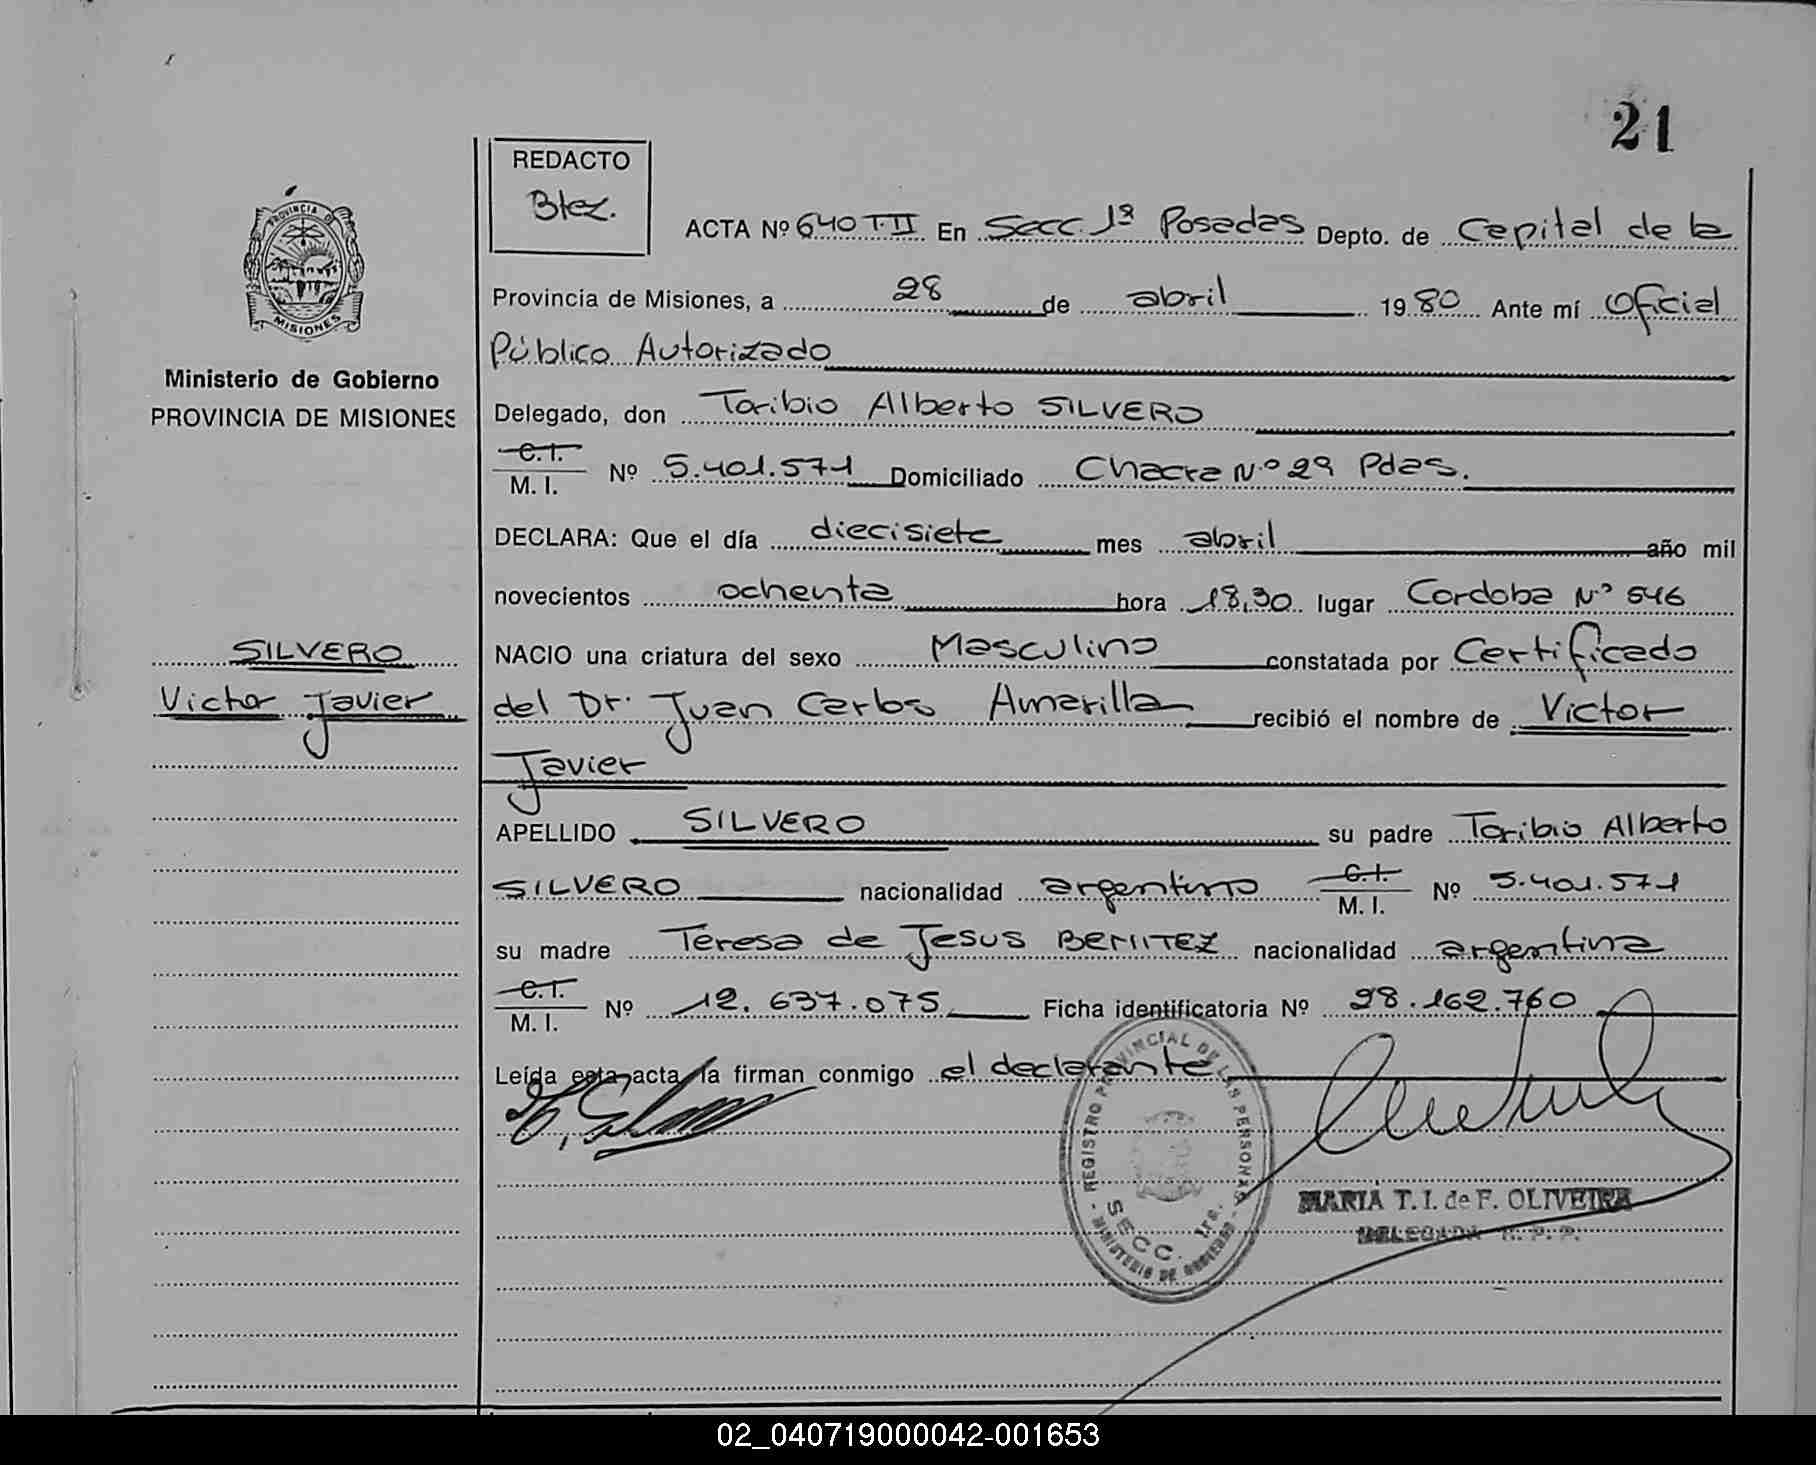 21
REDACTO
Btez.
ACTA Nº 640 T.II En Secc. 1ª Posadas Depto. de Capital de la
Provincia de Misiones, a 28 de abril 1980 Ante mí Oficial
Público Autorizado
Delegado, don Toribio Alberto SILVERO
C.I.
M. I. Nº 5.401.571 Domiciliado Chacra Nº 29 Pdas.
DECLARA: Que el día diecisiete mes abril año mil
novecientos ochenta hora 18,30 lugar Cordoba Nº 546
NACIO una criatura del sexo Masculino constatada por Certificado
del Dr. Juan Carlos Amarilla recibió el nombre de Victor
Javier
APELLIDO SILVERO su padre Toribio Alberto
SILVERO nacionalidad argentino C.I. M. I. Nº 5.401.571
su madre Teresa de Jesus BENITEZ nacionalidad argentina
C.I.
M. I. Nº 12.637.075 Ficha identificatoria Nº 28.162.760
Leída esta acta la firman conmigo el declarante
PROVINCIA DE
MISIONES
Ministerio de Gobierno
PROVINCIA DE MISIONES
SILVERO
Victor Javier
REGISTRO PROVINCIAL DE LAS PERSONAS
SECC. 1ra.
MINISTERIO DE GOBIERNO
MARIA T. I. de F. OLIVEIRA
DELEGADA R. P. P.
02_040719000042-001653